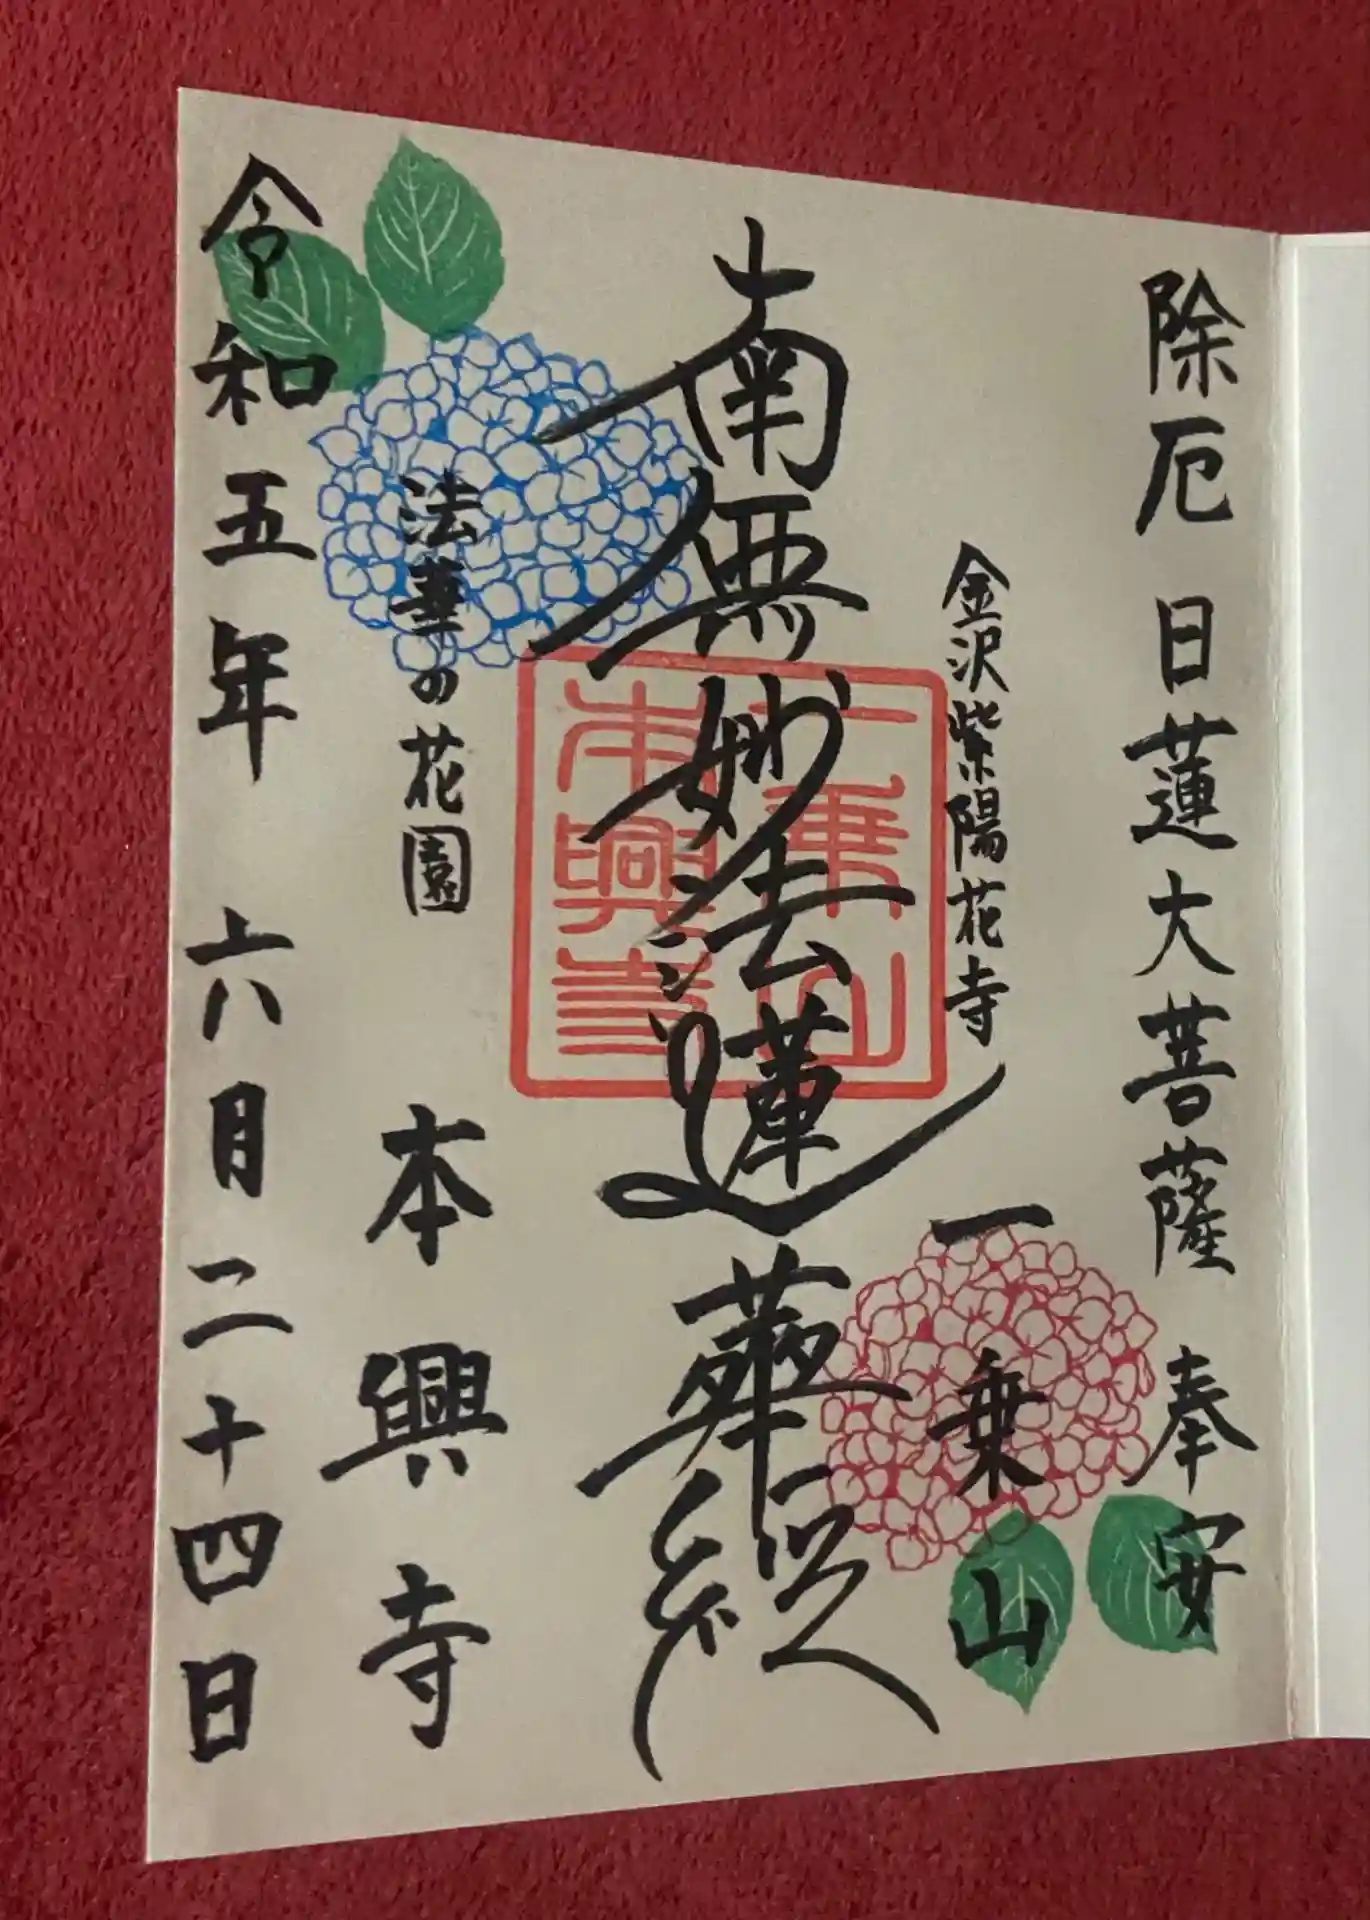 除厄日蓮大菩薩 奉安
金沢紫陽花寺
一乗山
南無妙法蓮華経
一乗山
本興寺
法華の花園
本興寺
令和五年 六月二十四日